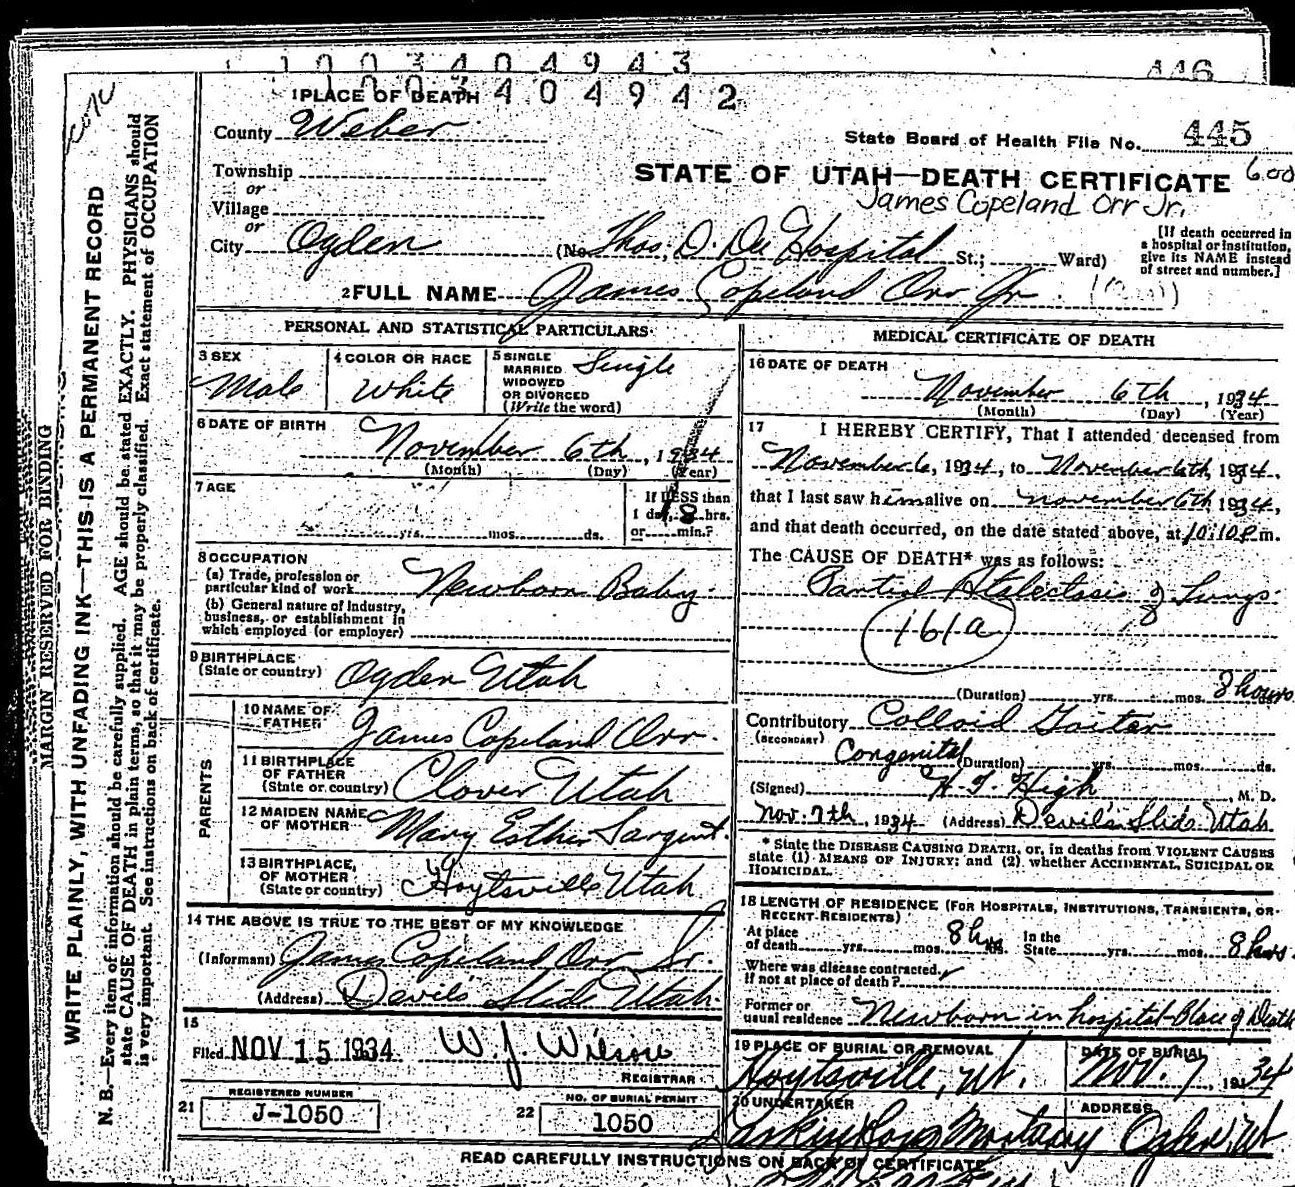 1 0 0 3 4 0 4 9 4 3
446
1 0 0 3 4 0 4 9 4 2
1 PLACE OF DEATH
County Weber
State Board of Health File No. 445
600
STATE OF UTAH—DEATH CERTIFICATE
James Copeland Orr Jr.
Township
or
Village
or
City Ogden (No. Thos. D. Dee Hospital St.; Ward)
[If death occurred in
a hospital or institution,
give its NAME instead
of street and number.]
2 FULL NAME James Copeland Orr Jr.
PERSONAL AND STATISTICAL PARTICULARS
3 SEX
Male
4 COLOR OR RACE
White
5 SINGLE
MARRIED
WIDOWED
OR DIVORCED
(Write the word)
Single
6 DATE OF BIRTH
November 6th, 1934
(Month) (Day) (Year)
7 AGE
yrs. mos. ds.
If LESS than
1 day, 8 hrs.
or min.?
8 OCCUPATION
(a) Trade, profession or
particular kind of work Newborn Baby
(b) General nature of Industry,
business, or establishment in
which employed (or employer)
9 BIRTHPLACE
(State or country) Ogden Utah
PARENTS
10 NAME OF
FATHER James Copeland Orr.
11 BIRTHPLACE
OF FATHER
(State or country) Clover Utah
12 MAIDEN NAME
OF MOTHER Mary Esther Sargent.
13 BIRTHPLACE,
OF MOTHER
(State or country) Hoytsville Utah
14 THE ABOVE IS TRUE TO THE BEST OF MY KNOWLEDGE
(Informant) James Copeland Orr Sr.
(Address) Devil's Slide Utah.
15
Filed NOV 15 1934 W. J. Wilson
REGISTRAR
21 REGISTERED NUMBER
J-1050
22 NO. OF BURIAL PERMIT
1050
MEDICAL CERTIFICATE OF DEATH
16 DATE OF DEATH
November 6th, 1934
(Month) (Day) (Year)
17 I HEREBY CERTIFY, That I attended deceased from
November 6, 1934, to November 6th, 1934,
that I last saw him alive on November 6th 1934,
and that death occurred, on the date stated above, at 10:10 P.m.
The CAUSE OF DEATH* was as follows:
Partial Atalectasis of Lungs.
161a
(Duration) yrs. mos. 8 hours
Contributory Colloid Goiter
(SECONDARY)
Congenital (Duration) yrs. mos. ds.
(Signed) H. F. High, M. D.
Nov. 7th, 1934 (Address) Devil's Slide Utah
* State the DISEASE CAUSING DEATH, or, in deaths from VIOLENT CAUSES
state (1) MEANS OF INJURY; and (2) whether ACCIDENTAL, SUICIDAL OR
HOMICIDAL.
18 LENGTH OF RESIDENCE (FOR HOSPITALS, INSTITUTIONS, TRANSIENTS, OR
RECENT RESIDENTS)
At place
of death yrs. mos. 8 hrs. In the
State yrs. mos. 8 hours.
Where was disease contracted,
If not at place of death?
Former or
usual residence Newborn in hospital-Place of Death
19 PLACE OF BURIAL OR REMOVAL
Hoytsville, Ut.
DATE OF BURIAL
Nov. 7, 1934
20 UNDERTAKER
Larkin Mortuary
ADDRESS
Ogden, Ut
READ CAREFULLY INSTRUCTIONS ON BACK OF CERTIFICATE
MARGIN RESERVED FOR BINDING
WRITE PLAINLY, WITH UNFADING INK—THIS IS A PERMANENT RECORD
N. B.—Every item of information should be carefully supplied. AGE should be stated EXACTLY. PHYSICIANS should
state CAUSE OF DEATH in plain terms, so that it may be properly classified. Exact statement of OCCUPATION
is very important. See instructions on back of certificate.